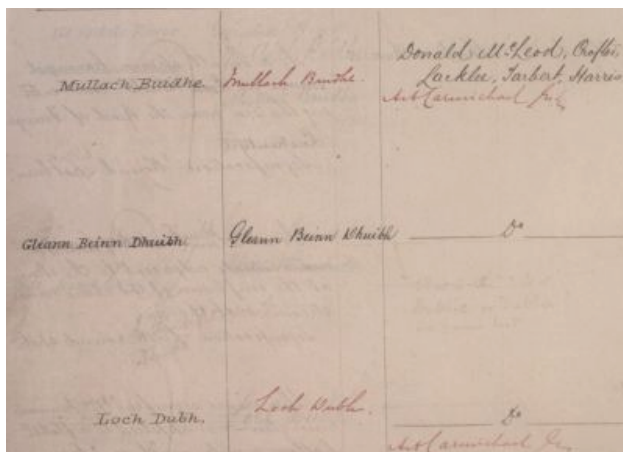 Mullach Buidhe. Mullach Buidhe. Donald McLeod, Crofter,
Lacklee, Tarbert, Harris
Art Carmichael Esq
Gleann Beinn Dhuibh. Gleann Beinn Dhuibh Do
Loch Dubh. Loch Dubh. Do
Art Carmichael Esq